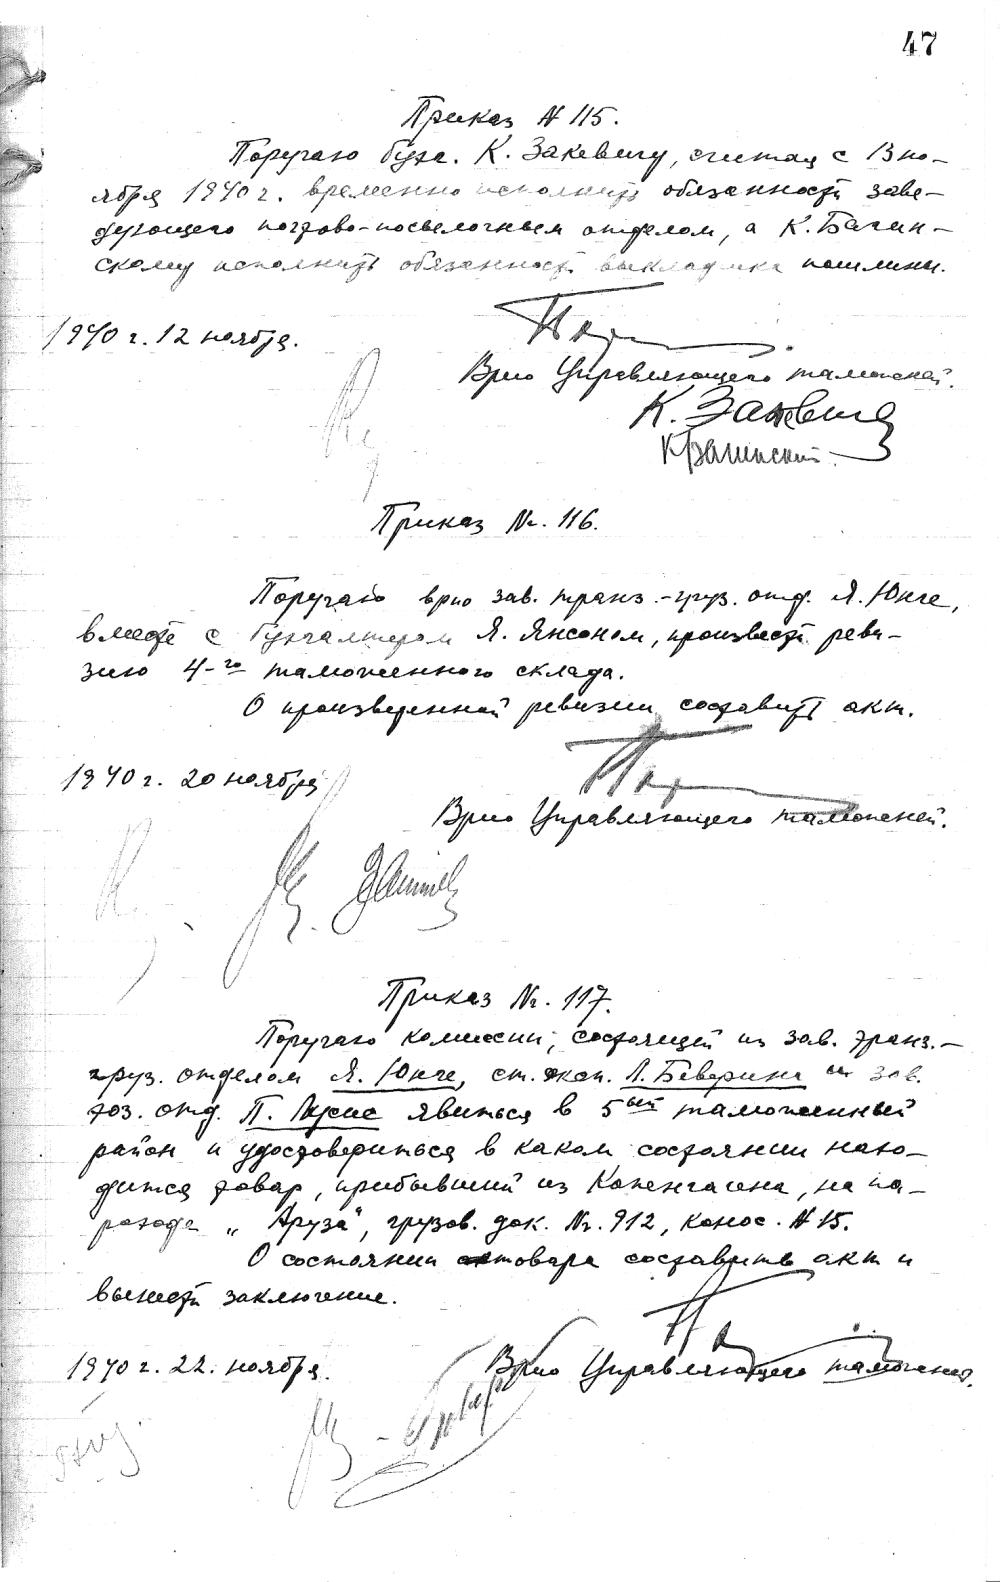 47
Приказ N 115.
Поручаю бухг. К. Закевичу, считая с 13 но-
ября 1940 г. временно исполнить обязанности заве-
дующего почтово-посылочным отделом, а К. Багин-
скому исполнить обязанности выкладчика пошлины.
1940 г. 12 ноября.
Врио Управляющего таможней.
К. Закевич
К Багинский
Приказ Nr. 116.
Поручаю врио зав. транз.-груз. отд. Я. Юнге,
вместе с бухгалтером Я. Янсоном, произвести реви-
зию 4-го таможенного склада.
О произведенной ревизии составить акт.
1940 г. 20 ноября
Врио Управляющего таможней.
Приказ Nr. 117.
Поручаю комиссии, состоящей из зав. транз.-
груз. отделом Я. Юнге, ст. эксп. Л. Беверина и зав.
тоз. отд. П. явиться в 5ый таможенный
район и удостовериться в каком состоянии нахо-
дится товар, прибывший из Копенгагена, на па-
роходе „Аруза", грузов. док. Nr. 912, конос. N 15.
О состоянии товара составить акт и
вынести заключение.
1940 г. 22. ноября.
Врио Управляющего таможней.